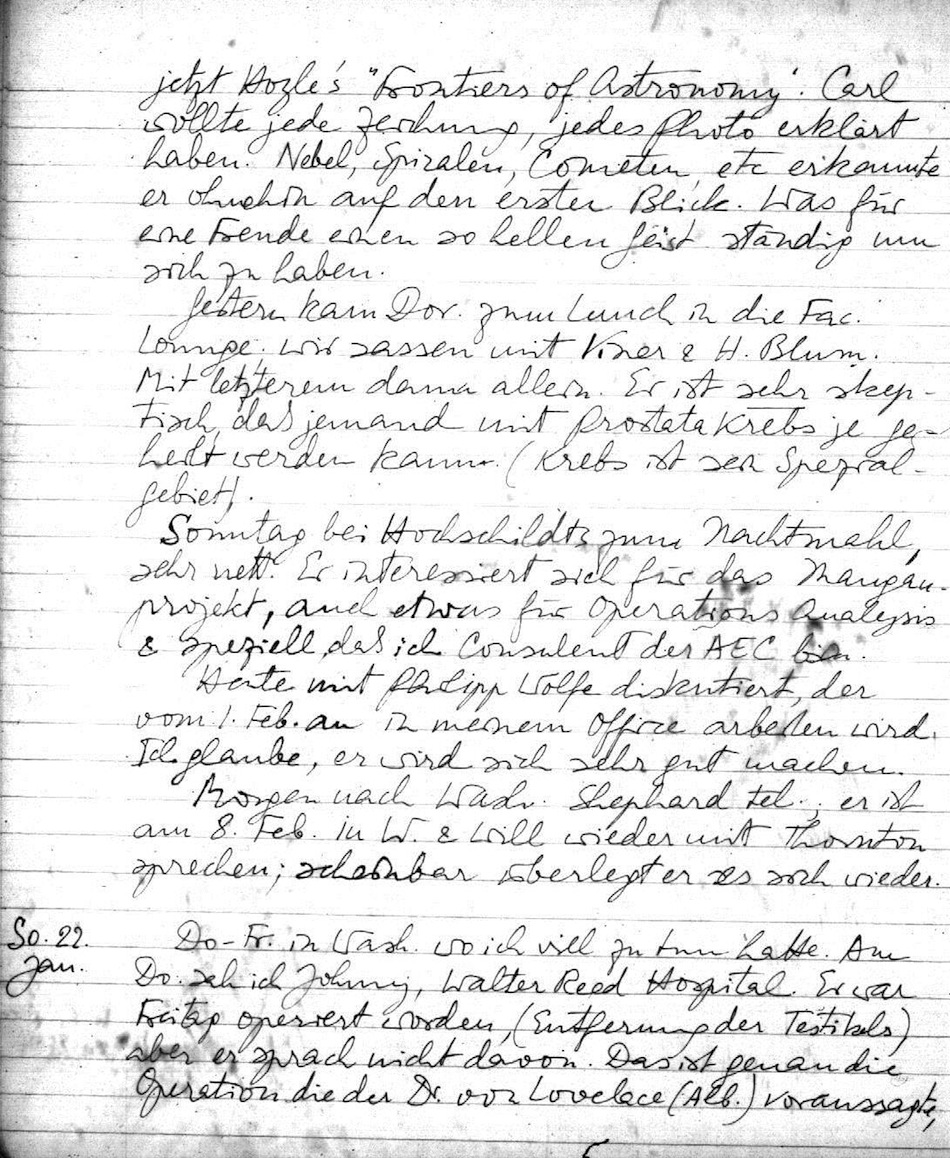 jetzt Hoyle's "Frontiers of Astronomy". Carl
wollte jede Zeichnung, jedes Photo erklärt
haben. Nebel, Spiralen, Cometen, etc erkannte
er ohnehin auf den ersten Blick. Was für
eine Freude einen so hellen Geist ständig um
sich zu haben.
Gestern kam Dor. zum Lunch in die Fac.
Lounge, wir sassen mit Viner & H. Blum.
Mit letzterem dann allein. Er ist sehr skep-
tisch, daß jemand mit Prostata Krebs je ge-
heilt werden kann. (Krebs ist sein Spezial-
gebiet).
Sonntag bei Hochschildts zum Nachtmahl,
sehr nett. Er interessiert sich für das Mangan-
projekt, auch etwas für Operations Analysis
& speziell, daß ich Consulent der AEC bin.
Heute mit Philipp Wolfe diskutiert, der
vom 1. Feb. an in meinem Office arbeiten wird.
Ich glaube, er wird sich sehr gut machen.
Morgen nach Wash. Shephard tel., er ist
am 8. Feb. in W. & will wieder mit Thornton
sprechen; scheinbar überlegt er es sich wieder.
So. 22. Jan.
Do-Fr. in Wash. wo ich viel zu tun hatte. Am
Do. sah ich Johnny, Walter Reed Hospital. Er war
Freitag operiert worden, (Entfernung der Testikels)
aber er sprach nicht davon. Das ist genau die
Operation die der Dr. von Lovelace (Alb.) voraussagte,